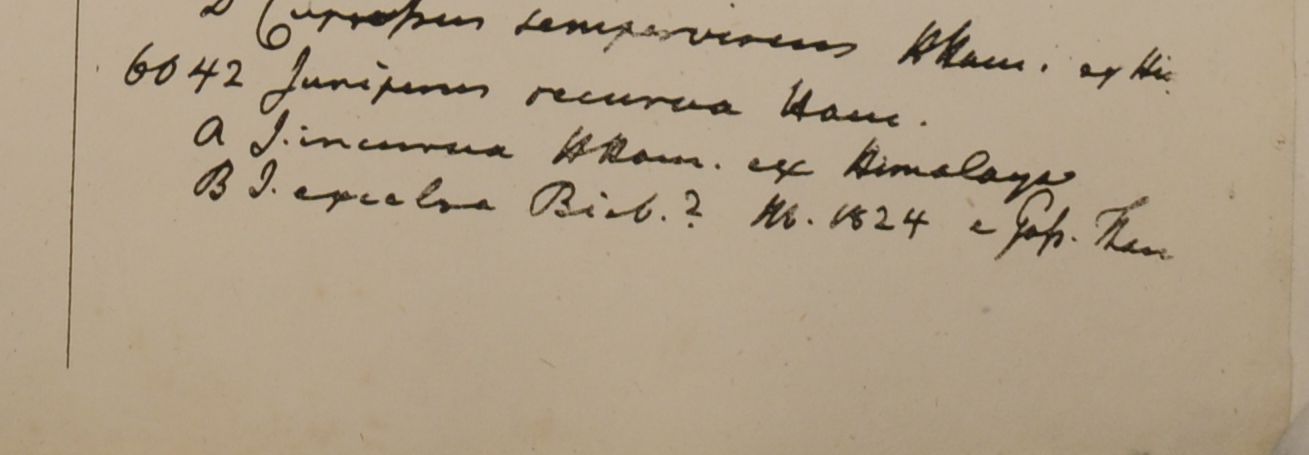 D Cupressus sempervirens HHam. ex Hi
6042 Juniperus recurva Ham.
A J. incurva HHam. ex Himalaya
B J. excelsa Bieb.? Hb. 1824 e Gos. Than